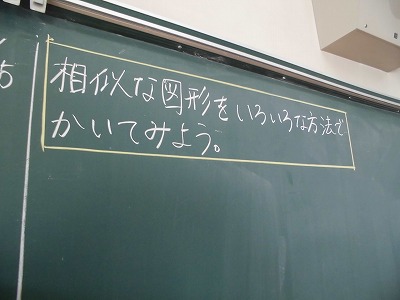 相似な図形をいろいろな方法で
かいてみよう。